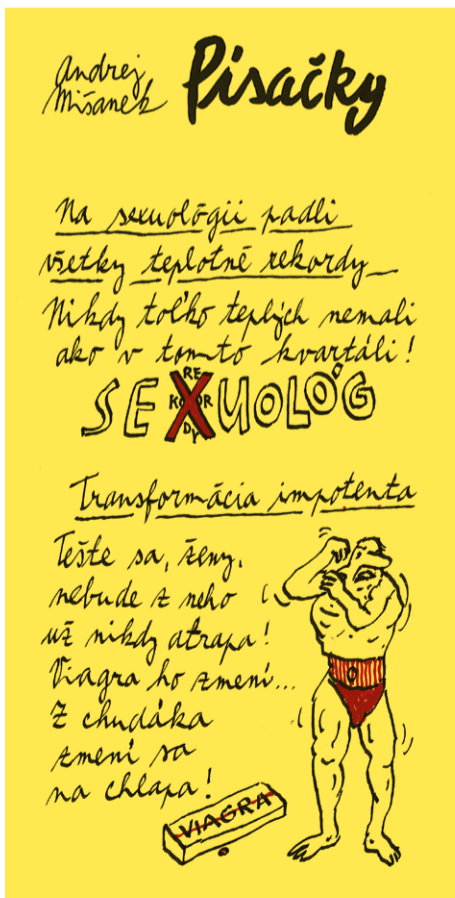 Andrej
Mišanek
Písačky
Na sexuológii padli
všetky teplotné rekordy
Nikdy toľko teplých nemali
ako v tomto kvartáli!
SEXUOLÓG
RE
KO OR
DY
Transformácia impotenta
Tešte sa, ženy,
nebude z neho
už nikdy atrapa!
Viagra ho zmení...
Z chudáka
zmení sa
na chlapa!
VIAGRA